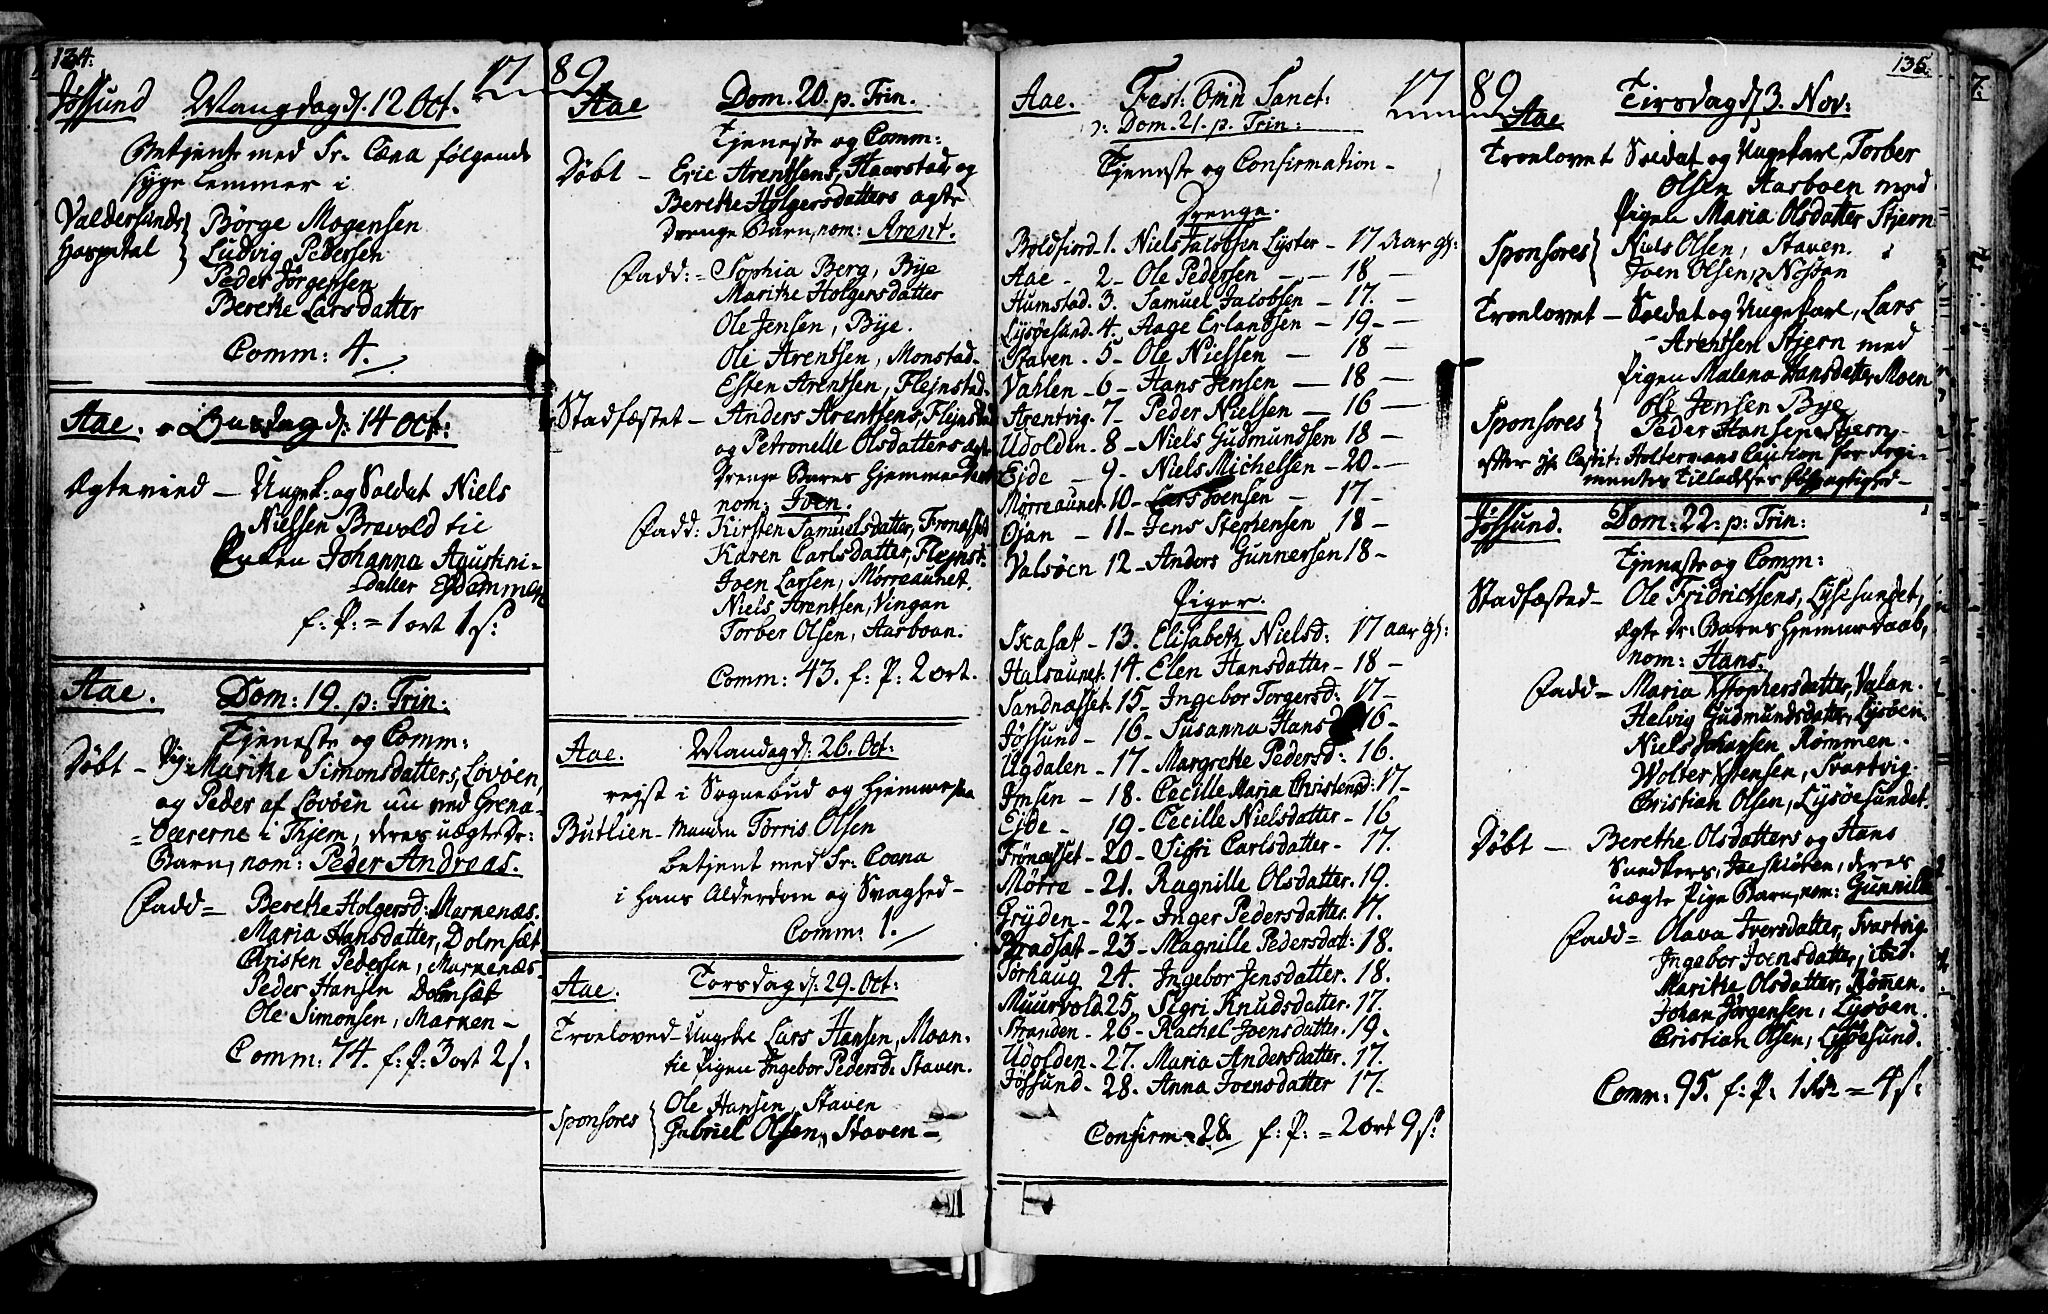 134.
17 89
Jössund Mandag d: 12 Oct.
Betjent med Sr. Cæna følgende
syge Lemmer i
Valdersunds
Hospital
Börge Mogensen
Ludvig Pedersen
Peder Jörgensen
Berethe Larsdatter
Comm: 4.
Aae. Onsdag d: 14 Oct:
Ægtevied — Ungk: og Soldat Niels
Nielsen Brevold til
Enken Johanna Agustini-
datter
f: P: = 1 ort 1 s:
Aae. Dom: 19. p: Trin:
Tjeneste og Comm:
Döbt — Pig: Marithe Simonsdatters, Lovöen,
og Peder af Lovöen nu ved Grena-
=deererne i Thjem, deres uægte Dr:
Barn, nom: Peder Andreas.
Fadd = Berethe Holgersd: Marnenæs.
Maria Hansdatter, Dolmsæt
Christen Pedersen, Marnenæs-
Peder Hansen Dolmsæt
Ole Simonsen, Marnen —
Comm: 74. f: P: 3 ort 2 s:
Aae Dom. 20. p. Trin.
Tjeneste og Comm:
Döbt — Eric Arentsens, Haarstad og
Berethe Holgersdatters ægte
Drenge Barn, nom: Arent.
Fadd: = Sophia Berg, Bye
Marithe Holgersdatter
Ole Jensen, Bye.
Ole Arentsen, Monstad-
Esten Arentsen, Flejnstad-
Stadfæstet — Anders Arentsens, Flejnstad
og Petronelle Olsdatters ægte
Drenge Barns Hjemme Daab
nom: Joen.
Fadd: Kirsten Samuelsdatter, Frönæsset
Karen Carlsdatter, Flejnst:
Joen Larsen, Mørreaunet.
Niels Arentsen, Vingan
Torber Olsen, Aasboan.
Comm: 43. f: P: 2 ort.
Aae. Mandag d: 26. Oct:
rejst i Sognebud og hjemme paa
Butlien — Manden Torris Olsen
betjent med Sr: Coena
i hans Alderdom og Svaghed —
Comm: 1.
Aae. Torsdag d: 29. Oct:
Troeloved — Ungk: Lars Hansen, Moan.
til Pigen Ingebor Pedersd: Staven.
Sponsores
Ole Hansen, Staven
Gabriel Olsen, Staven —
135.
17 89
Aae. Fest: Omn Sanct:
ɔ: Dom. 21. p. Trin:
Tjeneste og Confirmation —
Drenge.
Boldfiord - 1. Niels Jacobsen Lyster — 17 Aar gl:
Aae - 2 - Ole Pedersen — — 18 —
Humstad. 3. Samuel Jacobsen — 17. —
Lysöesund. 4. Aage Erlandsen — 19 — —
Staven - 5 - Ole Nielsen — 18 —
Vahlen - 6 - Hans Jensen — 18 —
Arentvig - 7 - Peder Nielsen — 16 —
Udolden - 8 - Niels Gudmundsen 18 —
Ejde — 9 - Niels Michelsen — 20. —
Mørreaunet 10 - Lars Joensen — 17 —
Ojan — 11 - Jens Stephensen 18 —
Valsöen 12 - Anders Gunnersen 18 —
Piger.
Skasæt - 13. Elisabeth Nielsd: 17 aar gl:
Halsaunet. 14. Elen Hansdatter — 18 —
Sandnæsset 15 - Ingebor Torgersd: 17 —
Jössund - 16 - Susanna Hansd 16 —
Ugdalen - 17 - Margrethe Pedersd: 16.
Imsen - 18. Cecille Maria Christensd: 17 —
Ejde - 19 - Cecille Nielsdatter - 16
Frönæsset - 20 - Sigri Carlsdatter - 17.
Mörre - 21. Ragnille Olsdatter. 19.
Gryden - 22 - Inger Pedersdatter. 17.
Bradsæt - 23 - Magnille Pedersdatt: 18.
Torhaug 24. Ingebor Jensdatter. 18.
Muurvold 25. Sigri Knudsdatter. 17.
Stranden - 26 - Rachel Joensdatter. 19.
Udolden - 27. Maria Andersdatter. 17.
Jössund - 28. Anna Joensdatter 17.
Confirm = 28. f: P: = 2 ort 9 s:
Aae Tirsdag d 3. Nov:
Troelovet Soldat og Ungekarl Torber
Olsen Aasboen med
Pigen Maria Olsdatter Stjern
Sponsores
Niels Olsen, Staven.
Joen Olsen, Nesten
Troelovet — Soldat og Ungekarl, Lars
Arentsen Stjern med
Pigen Malena Hansdatter Moen
Sponsores
Ole Jensen Bye
Peder Hansen Stjern —
efter Hr Capit: Holtermans Caution for Regi-
mentes Tilladelses —
Jössund. Dom: 22: p: Trin:
Tjeneste og Comm:
Stadfæsted — Ole Fridrichsens, Lysöesundet,
ægte Dr: Barns hjemme Daab,
nom: Hans.
Fadd — Maria Xstophersdatter, Valan.
Helvig Gudmundsdatter, Lysöen.
Niels Johansen Rømmen.
Wolter Xstensen, Svartvig.
Christian Olsen, Lysöesundet.
Döbt — Berethe Olsdatters og Hans
deres
uægte Pige Barn, nom: Gunnille
Fadd = Olava Iversdatter, Svartvig.
Ingebor Joensdatter, ibid.
Marithe Olsdatter, Rømmen.
Johan Jörgensen, Lysöen.
Christian Olsen, Lysöesund.
Comm: 95. f: P. 1 Rdr = 4 s: